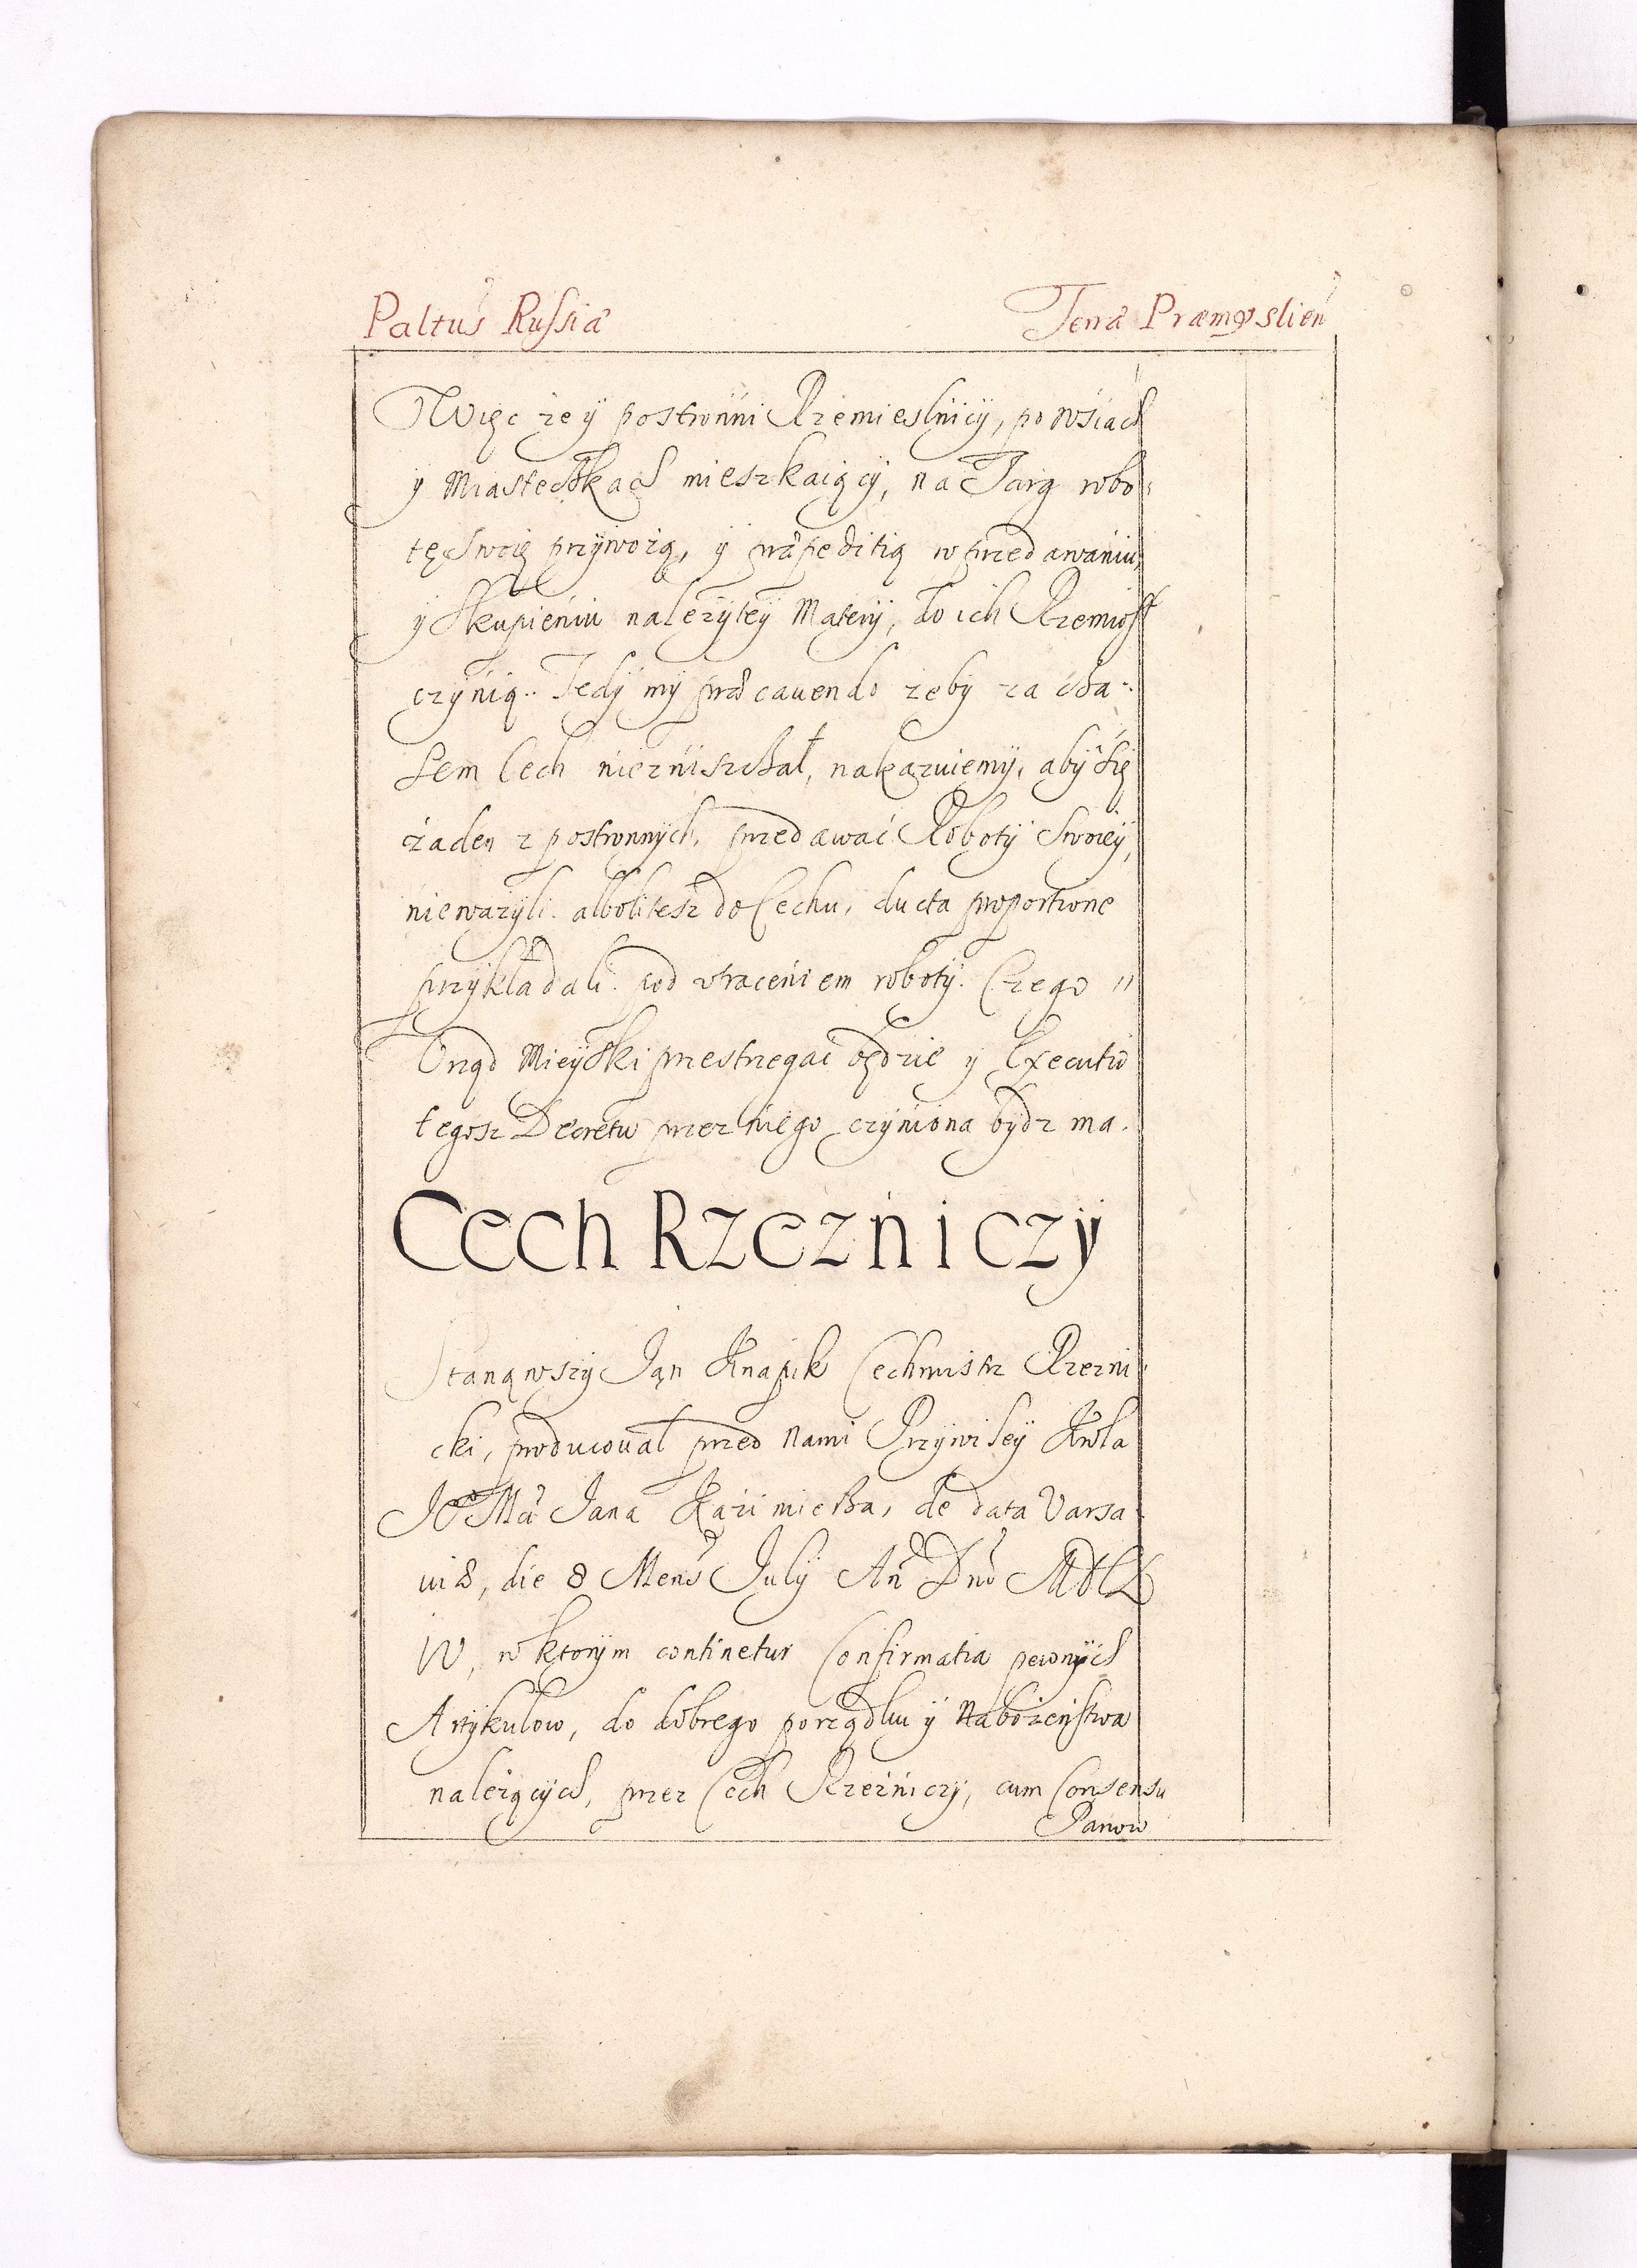 Paltus Russiæ Terræ Præmyslien
Więc że y postronni Rzemieslnicy, po wsiach
y Miasteczkach mieszkaiący, na Targ robo-
tę Swoię przywożą, y præpeditią w przedawaniu,
y Skupieniu należytey Matery, do ich Rzemiosł
czynią. Tedy my præcavendo żeby za cza-
sem Cech niezniszczał, nakazuiemy, aby się
żaden z postronnych, przedawać Roboty Swoiey,
nieważyli. albolitesz do Cechu, ducta proportione
przykładali. pod utraceniem roboty. Czego
Urząd Mieyski przestrzegać będzie y Executio
tegosz Decretu przez niego czyniona bydz ma.
Cech Rzezniczy
Stanąwszy Jan Knapik Cechmistrz Rzezni-
cki, producował przed nami Przywiley Krola
Je° Mci Jana Kazimierza, de data Varsa-
viæ, die 8 Mens July An Dno MDCL
IV, w ktorym continetur Confirmatia pewnych
Artykułow, do dobrego porządku y Nabożeństwa
należących, przez Cech Rzeźniczy, cum Consensu
Panow